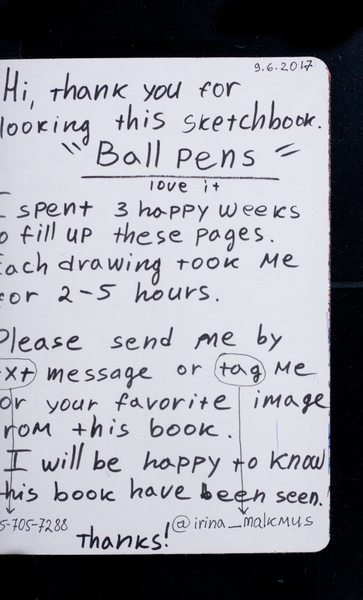 9.6.2017
Hi, thank you for
looking this sketchbook.
" Ball pens "
love it
I spent 3 happy weeks
o fill up these pages.
Each drawing took me
for 2-5 hours.
Please send me by
txt message or tag me
or your favorite image
rom this book.
I will be happy to know
this book have been seen.
5-705-7288 @irina_malkmus
Thanks!